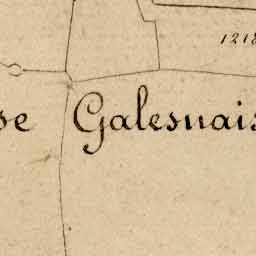 1218
se Galesnais